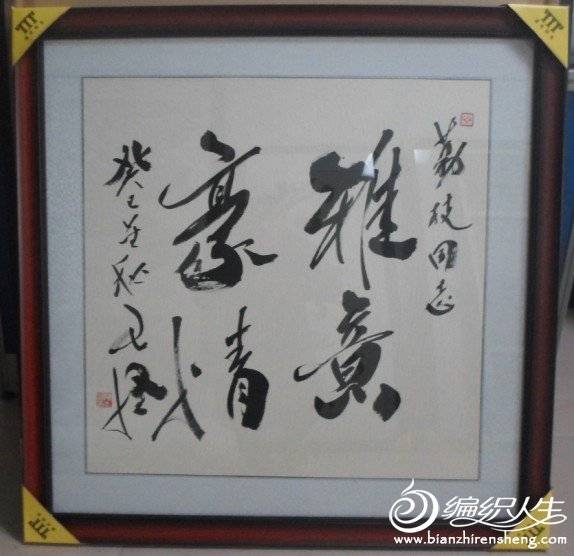 荔枝
雅意
豪情
癸巳 秋
编织人生
www.bianzhirensheng.com